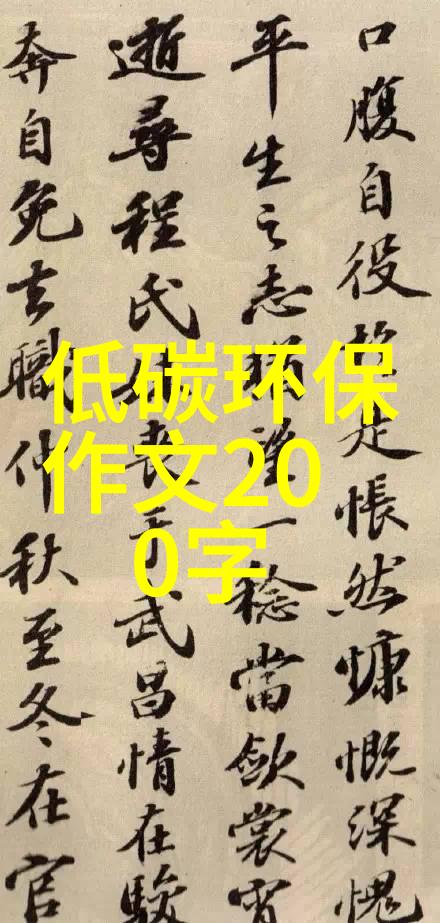 口腹自役於是悵然慷慨深愧
平生之志猶望一稔當斂裳宵
逝尋程氏妹喪于武昌情在駿
奔自免去職仲秋至冬在官
低碳环保
作文20
0字